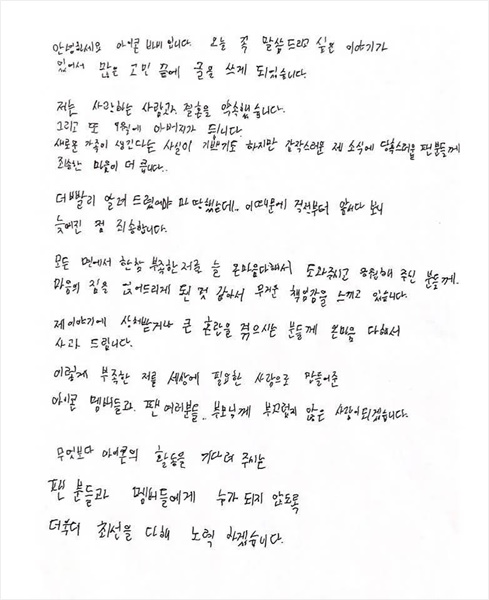 안녕하세요 아이콘 바비 입니다. 오늘 꼭 말씀드리고 싶은 이야기가
있어서 많은 고민 끝에 글을 쓰게 되었습니다.
저는 사랑하는 사람과 결혼을 약속했습니다.
그리고 또 9월에 아버지가 됩니다.
새로운 가족이 생긴다는 사실이 기쁘기도 하지만 갑작스러운 제 소식에 당혹스러울 팬분들께
죄송한 마음이 더 큽니다..
더 빨리 알려 드렸어야 마땅했는데.. 이 때문에 걱정부터 앞서다 보니
늦어진 점 죄송합니다.
모든 면에서 한참 부족한 저를 늘 온마음다해서 도와주시고 응원해 주신 분들께.
마음의 짐을 얹어드리게 된 것 같아서 무거운 책임감을 느끼고 있습니다.
제 이야기에 상처받거나 큰 혼란을 겪으시는 분들께 온마음 다해서
사과 드립니다.
이렇게 부족한 저를 세상에 필요한 사람으로 만들어준
아이콘 멤버들과 팬 여러분들.. 부모님께 부끄럽지 않은 사람이되겠습니다.
무엇보다 아이콘의 활동을 기다려 주시는
팬 분들과 멤버들에게 누가 되지 않도록
더욱더 최선을 다해 노력 하겠습니다.